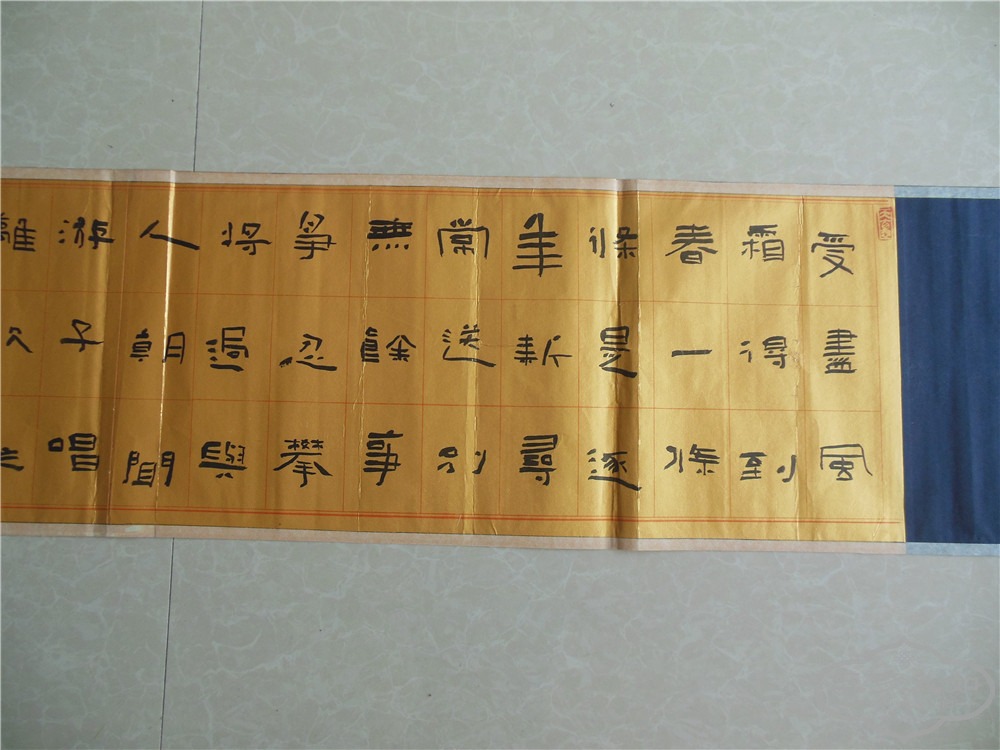 受盡風
霜得到
春一條
條是逐
年新尋
常送別
無餘事
爭忍攀
將過與
人朝聞
游子唱
離